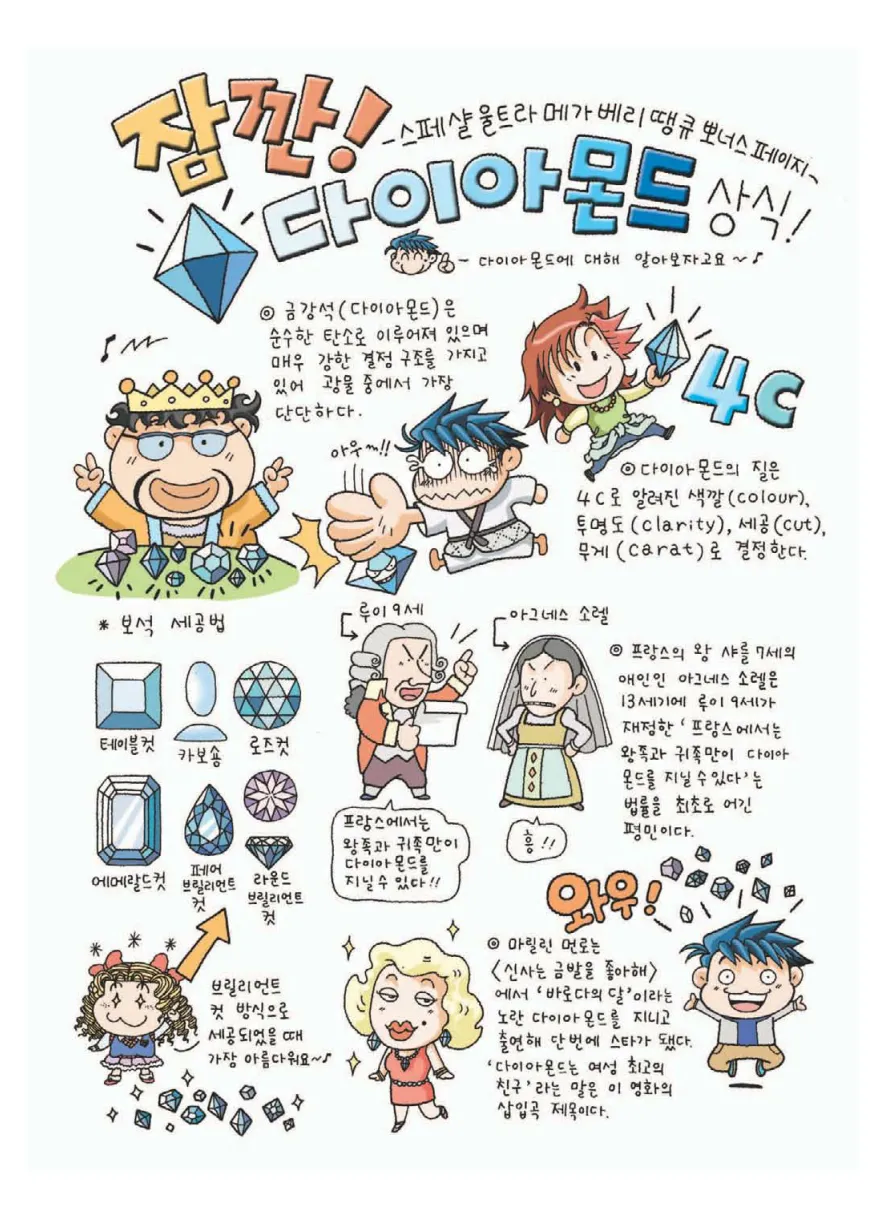 잠깐!
-스페샬 울트라 메가 베리 땡큐 뽀너스 페이지~
다이아몬드 상식!
- 다이아몬드에 대해 알아보자고요~♪
◎ 금강석(다이아몬드)은
순수한 탄소로 이루어져 있으며
매우 강한 결정 구조를 가지고
있어 광물 중에서 가장
단단하다.
4C
아우~!!
◎ 다이아몬드의 질은
4C로 알려진 색깔(colour),
투명도(clarity), 세공(cut),
무게(carat)로 결정한다.
* 보석 세공법
테이블컷
카보숑
로즈컷
에메랄드컷
페어
브릴리언트
컷
라운드
브릴리언트
컷
루이 9세
아그네스 소렐
프랑스에서는
왕족과 귀족만이
다이아몬드를
지닐 수 있다!!
흥!!
◎ 프랑스의 왕 샤를 7세의
애인인 아그네스 소렐은
13세기에 루이 9세가
재정한 '프랑스에서는
왕족과 귀족만이 다이아
몬드를 지닐 수 있다'는
법률을 최초로 어긴
평민이다.
브릴리언트
컷 방식으로
세공되었을 때
가장 아름다워요~♪
와우!
◎ 마릴린 먼로는
〈신사는 금발을 좋아해〉
에서 '바로다의 달'이라는
노란 다이아몬드를 지니고
출연해 단번에 스타가 됐다.
'다이아몬드는 여성 최고의
친구'라는 말은 이 영화의
삽입곡 제목이다.